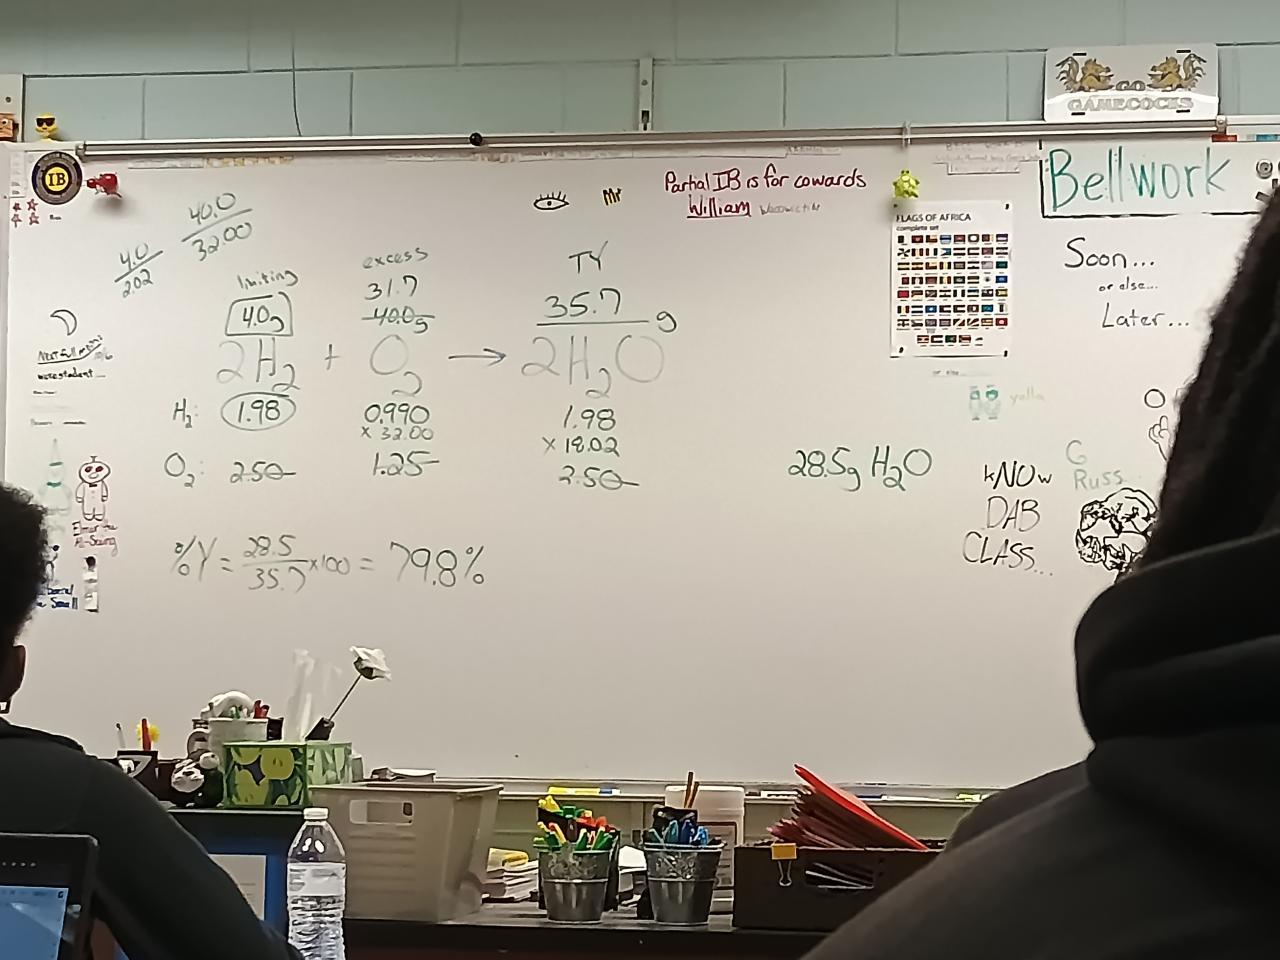 GO
GAMECOCKS
IB
Partial IB is for cowards
William
Bellwork
Soon...
or else...
Later...
FLAGS OF AFRICA
complete set
40.0
32.00
4.0
2.02
limiting
4.0g
excess
31.7
40.0g
TY
35.7 g
2H₂ + O₂ → 2H₂O
H₂: 1.98 0.990 1.98
x 32.00 x 18.02
O₂: 2.50 1.25 2.50
%Y = 28.5/35.7 x100 = 79.8%
28.5g H₂O
yalla
G
Russ...
kNOw
DAB
CLASS...
Next full moon
10/6
Elmer the
All-Seeing
Small